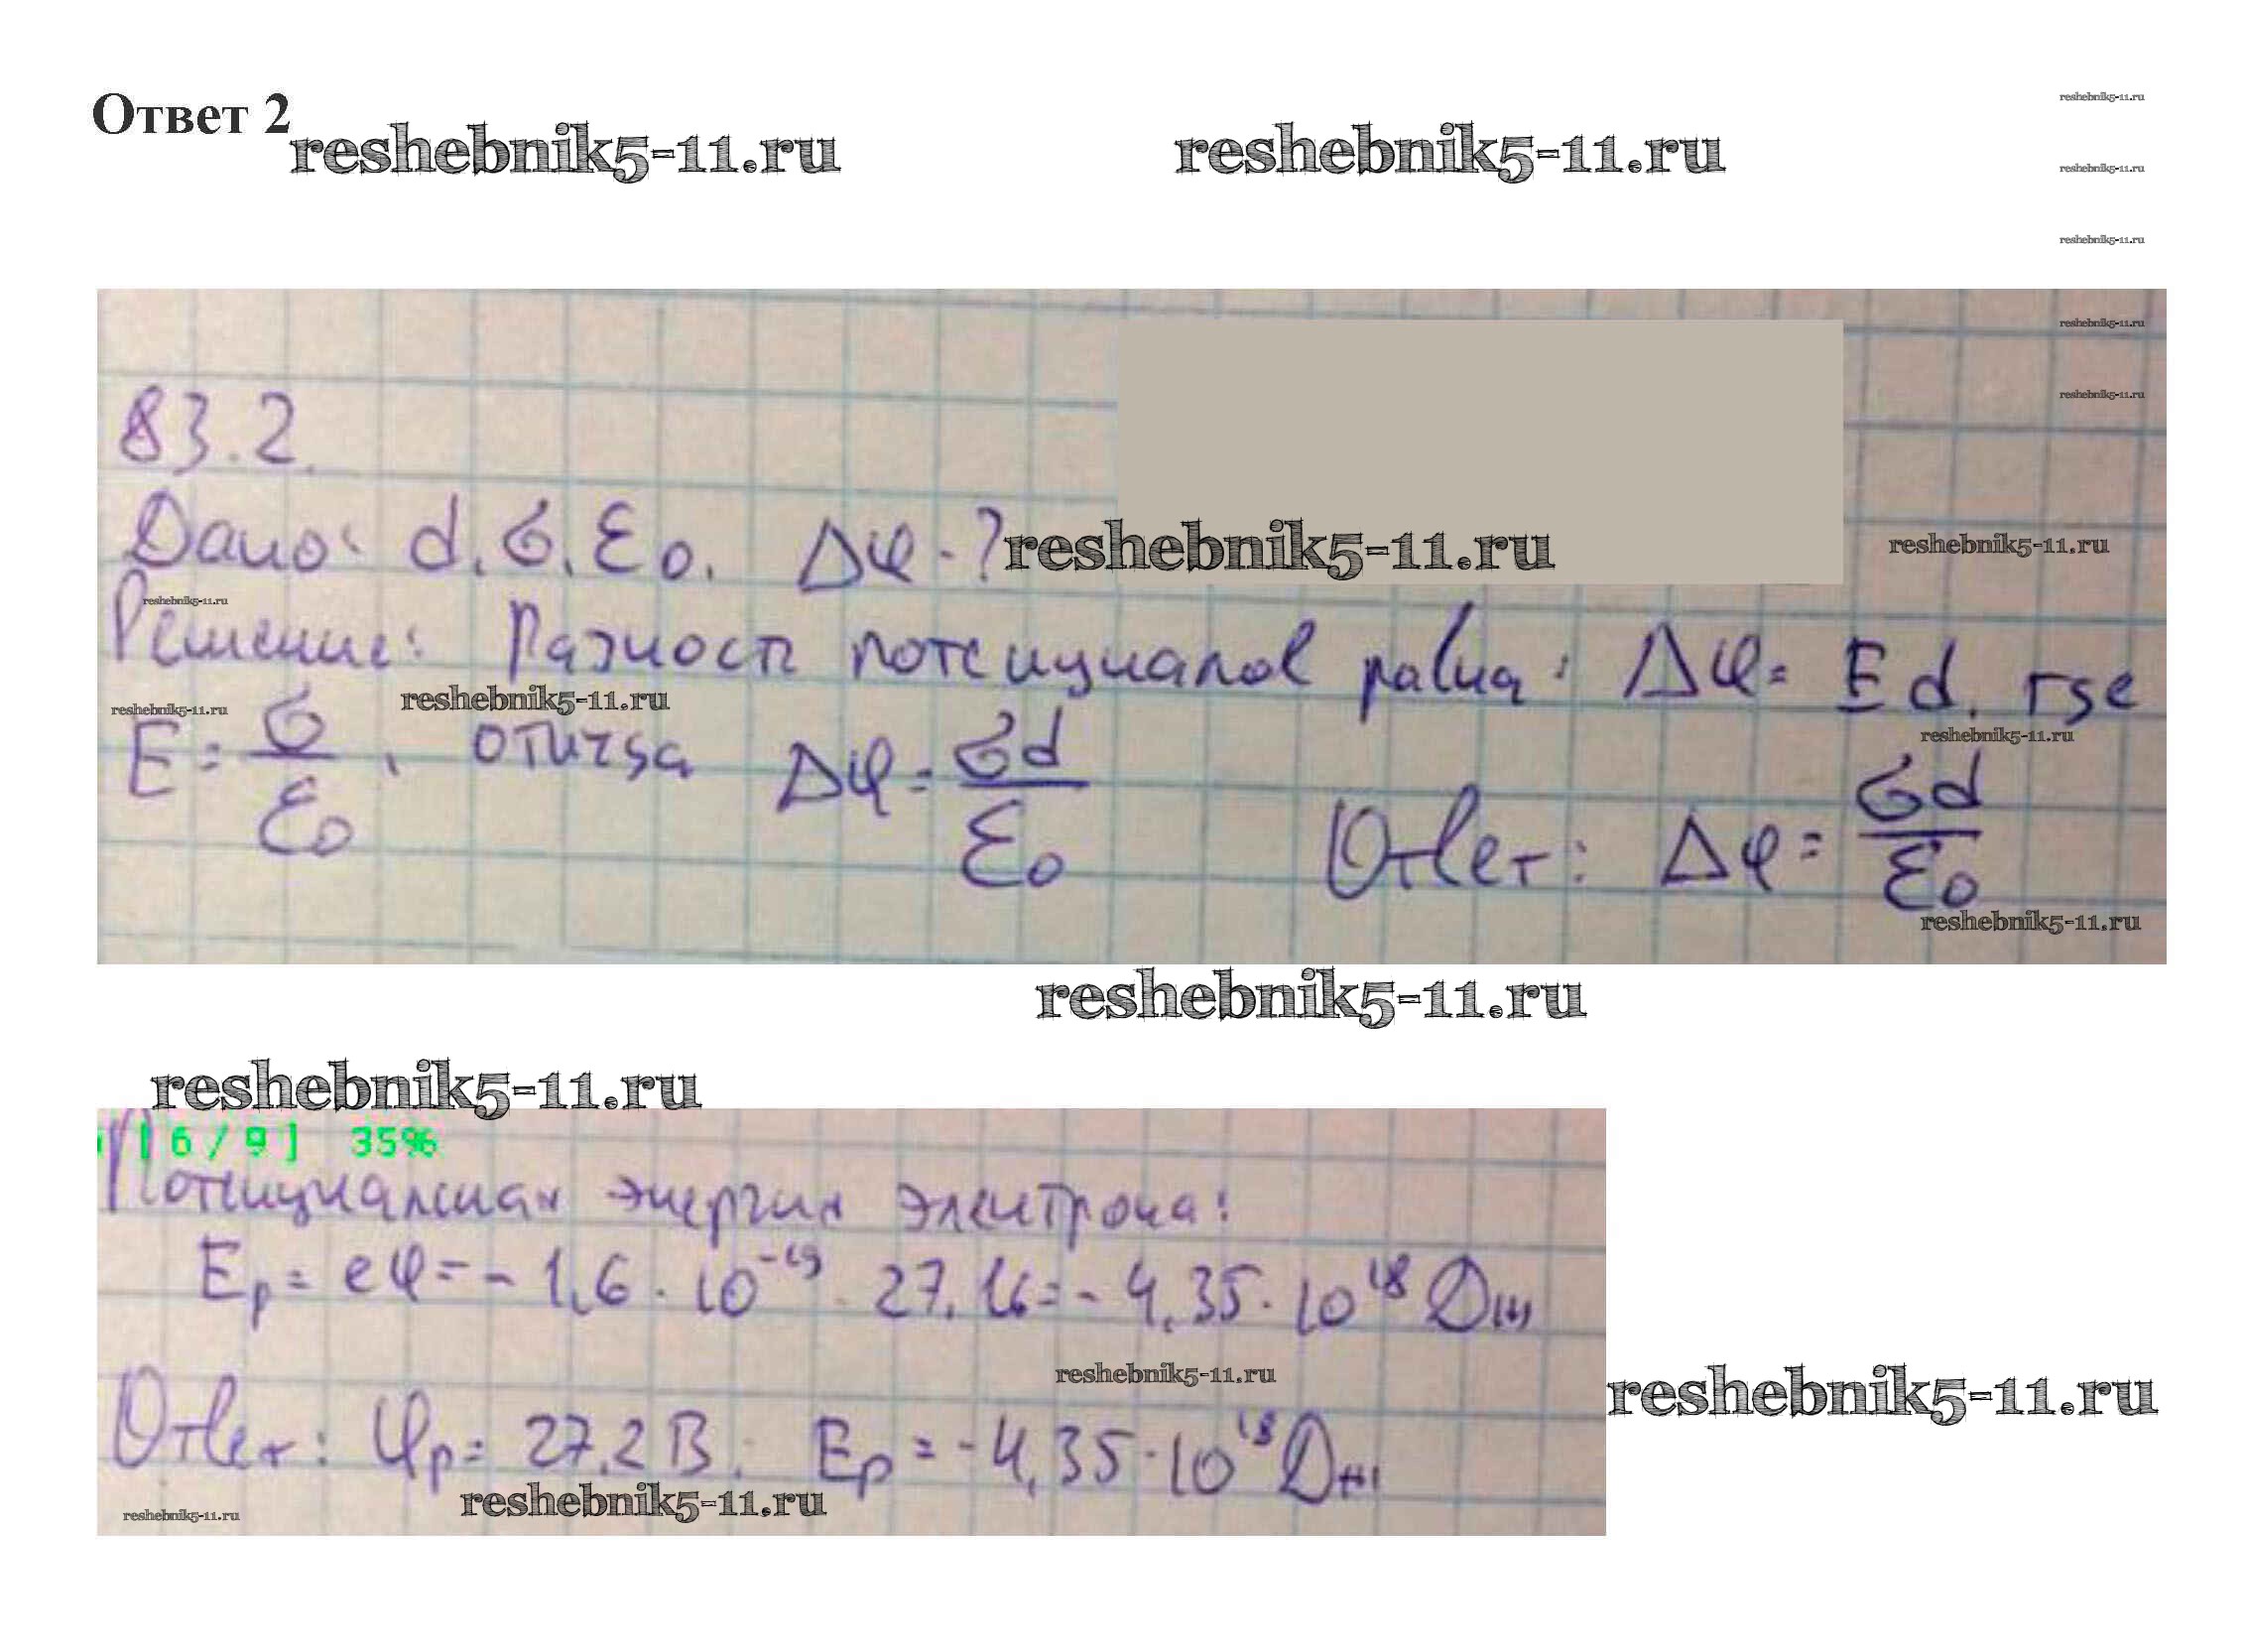 Ответ 2
reshebnik5-11.ru reshebnik5-11.ru reshebnik5-11.ru
reshebnik5-11.ru
reshebnik5-11.ru
reshebnik5-11.ru
reshebnik5-11.ru
83.2.
Дано: d, σ, ε₀. Δφ - ? reshebnik5-11.ru reshebnik5-11.ru
reshebnik5-11.ru
Решение: Разность потенциалов равна: Δφ = Ed, где
reshebnik5-11.ru reshebnik5-11.ru reshebnik5-11.ru
E = σ/ε₀, откуда Δφ = σd/ε₀ Ответ: Δφ = σd/ε₀
reshebnik5-11.ru
reshebnik5-11.ru
reshebnik5-11.ru
[ 6 / 9 ] 35%
Потенциальная энергия электрона:
Eₚ = eφ = - 1,6 · 10⁻¹⁹ · 27,16 = - 4,35 · 10¹⁸ Дж
reshebnik5-11.ru reshebnik5-11.ru
Ответ: φₚ = 27,2 В; Eₚ = - 4,35 · 10¹⁸ Дж
reshebnik5-11.ru reshebnik5-11.ru